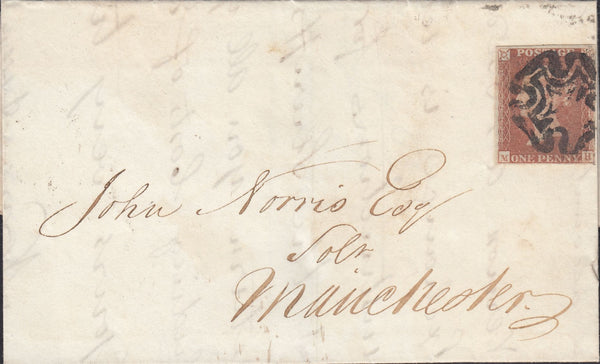 POSTAGE
ONE PENNY
John Norris Esq
Solr
Manchester